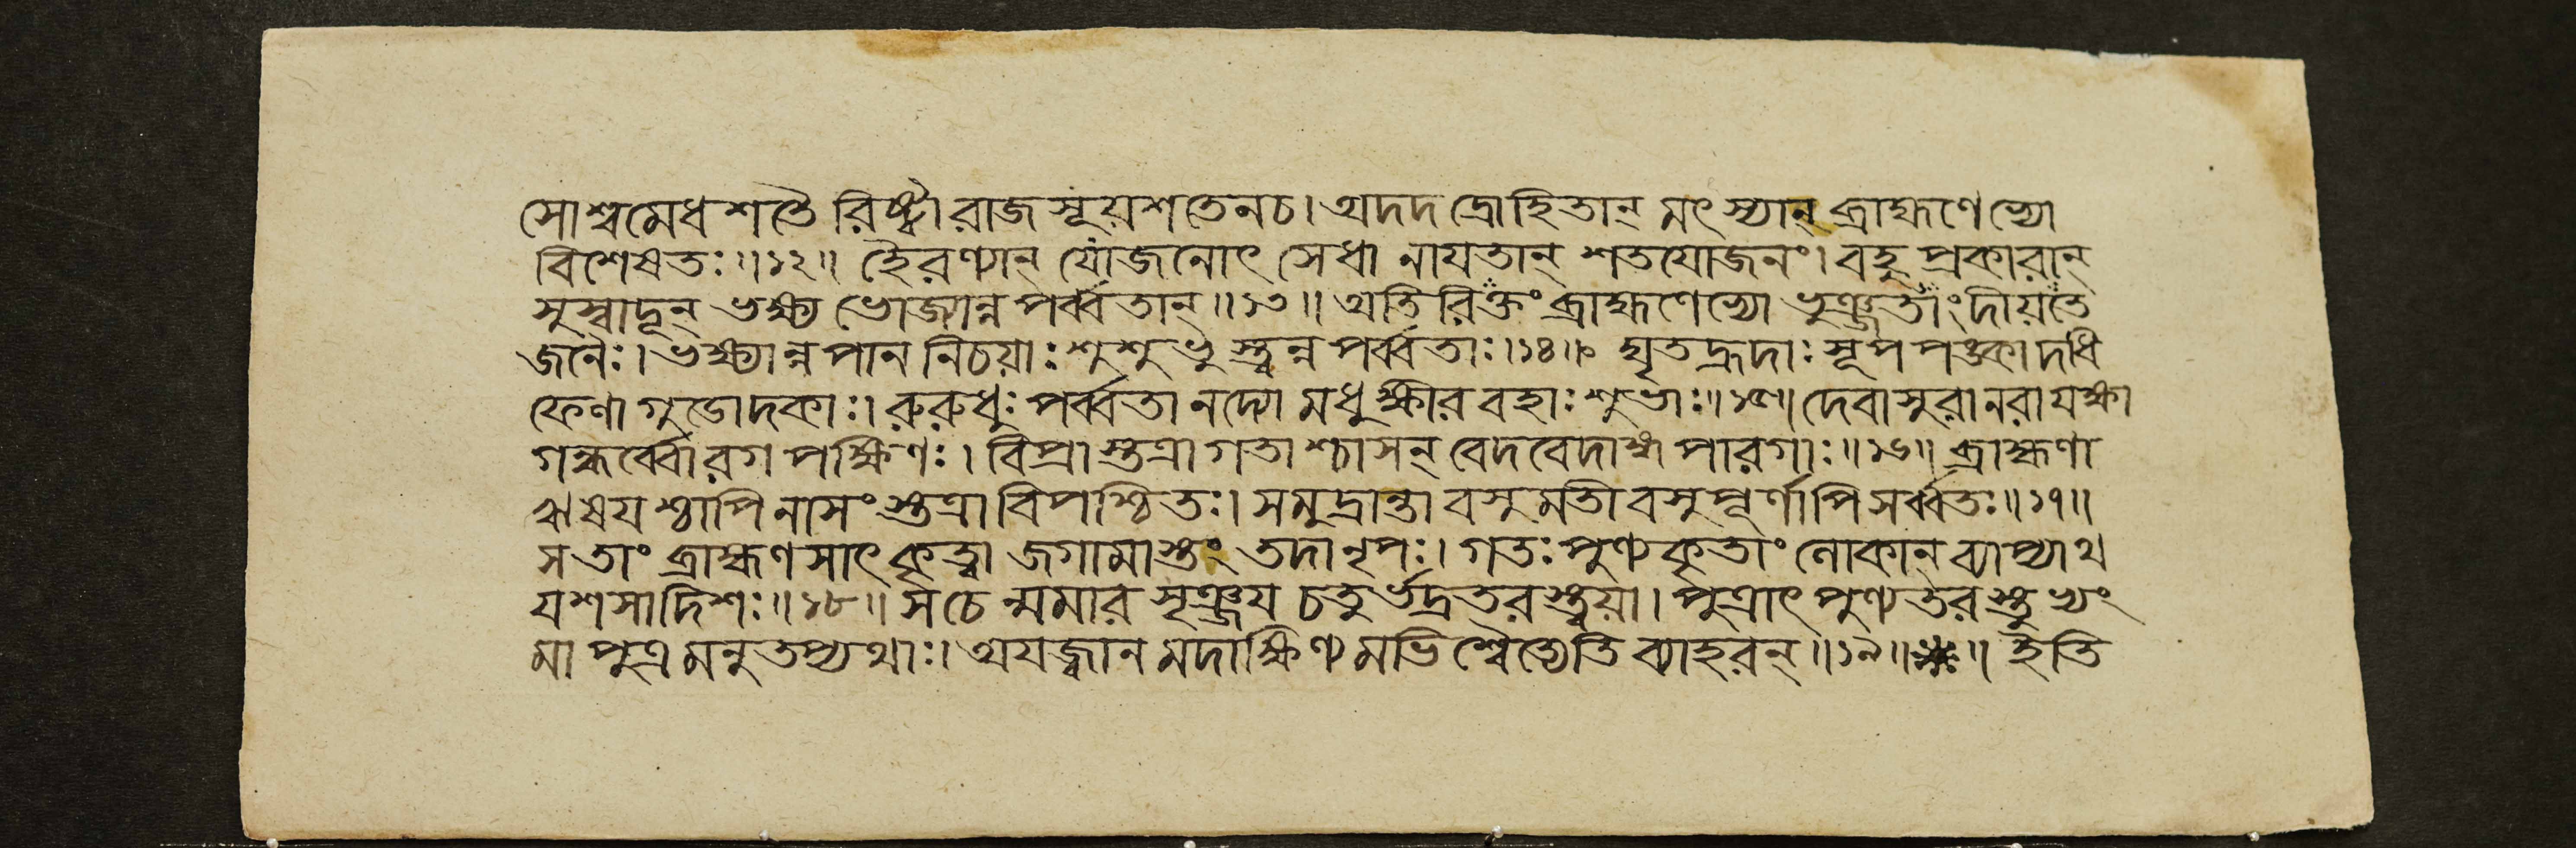 সোশ্বমেধশতৈ রিষ্ট্বা রাজসূয়শতেনচ। অদদদ্রোহিতান্ মৎস্যান্ ব্রাহ্মণেভ্যো
বিশেষতঃ॥১২॥ হৈরণ্যান্ যোজনোৎসেধানাযতান্ শতযোজনং। বহুপ্রকারান্
সুস্বাদূন্ ভক্ষ্যভোজ্যান্নপর্ব্বতান্॥১৩॥ অতিরিক্তং ব্রাহ্মণেভ্যো ভুঞ্জতাং দীয়তে
জনৈঃ। ভক্ষ্যান্নপাননিচয়াঃ শুশুভুস্ত্বন্নপর্ব্বতাঃ॥১৪॥ ঘৃতহ্রদাঃ সূপপঙ্কা দধি
ফেণা গুডোদকাঃ। রুরুধুঃ পর্ব্বতা নদ্যো মধুক্ষীরবহাঃ শুভাঃ॥১৫॥ দেবাসুরা নরা যক্ষা
গন্ধর্ব্বোরগপক্ষিণঃ। বিপ্রাস্তত্রাগতাশ্চাসন্ বেদবেদাঙ্গপারগাঃ॥১৬॥ ব্রাহ্মণা
ঋষযশ্চাপি নাসংস্তত্রাবিপশ্চিতঃ। সমুদ্রান্তা বসুমতী বসুপূর্ণাপি সর্ব্বতঃ॥১৭॥
স তাং ব্রাহ্মণসাৎকৃত্বা জগামাস্তং তদা নৃপঃ। গতঃ পুণ্যকৃতাং লোকান্ ব্যাপ্যাথ
যশসা দিশঃ॥১৮॥ স চেন্মমার সৃঞ্জয চতুর্ভদ্রতরস্ত্বয়া। পুত্রাৎ পুণ্যতরস্তুভ্যং
মা পুত্রমনুতপ্যথাঃ। অযজ্বানমদাক্ষিণ্যমভিশ্বৈত্যেতি ব্যাহরন্॥১৯॥ ॥ ইতি